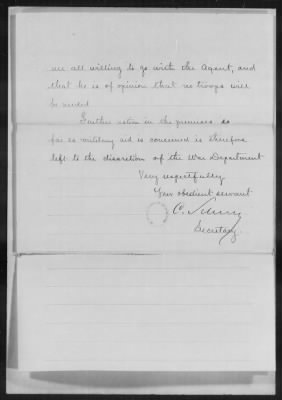 are all willing to go with the Agent, and
that he is of opinion that no troops will
be needed
Further action in the premises so
far as military aid is concerned is therefore
left to the discretion of the War Department
Very respectfully
Your obedient servant
C. Schurz
Secretary.